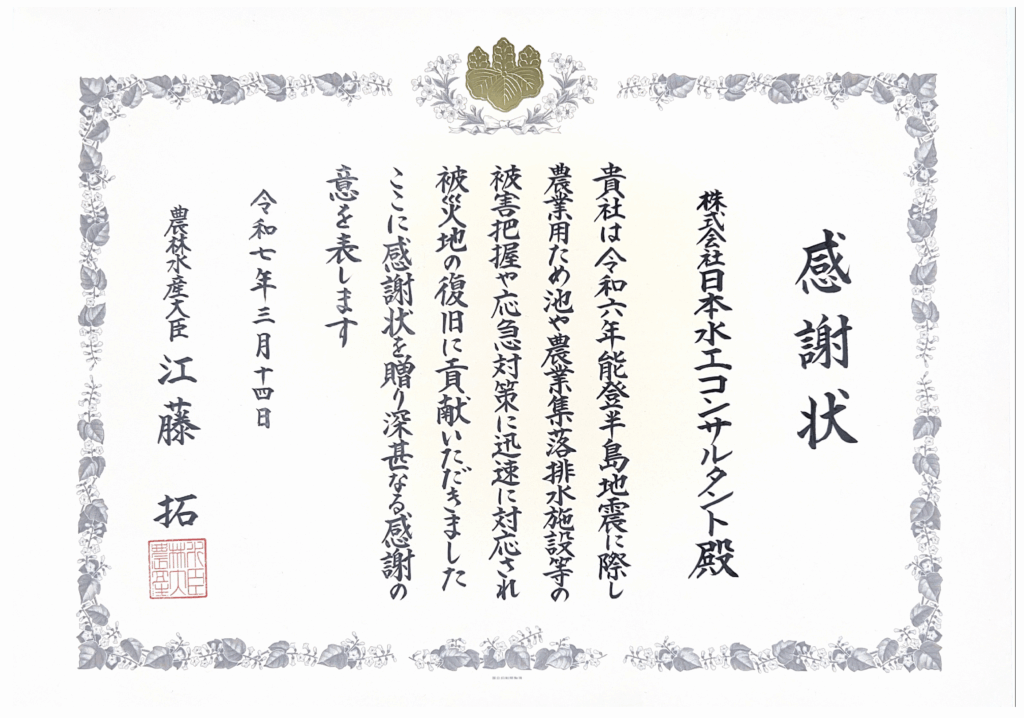 感謝状
株式会社日本水工コンサルタント殿
貴社は令和六年能登半島地震に際し
農業用ため池や農業集落排水施設等の
被害把握や応急対策に迅速に対応され
被災地の復旧に貢献いただきました
ここに感謝状を贈り深甚なる感謝の
意を表します
令和七年三月十四日
農林水産大臣 江藤 拓